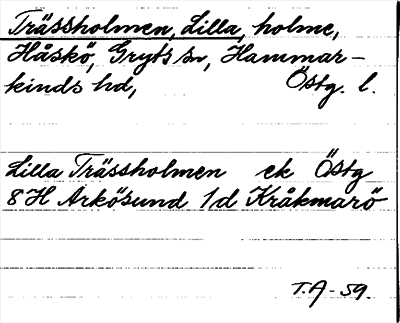 Trässholmen, Lilla, holme,
Håskö, Gryts sn, Hammar-
kinds hd, Östg. l.
Lilla Trässholmen ek Östg
8H Arkösund 1d Kråkmarö
T.A-59.